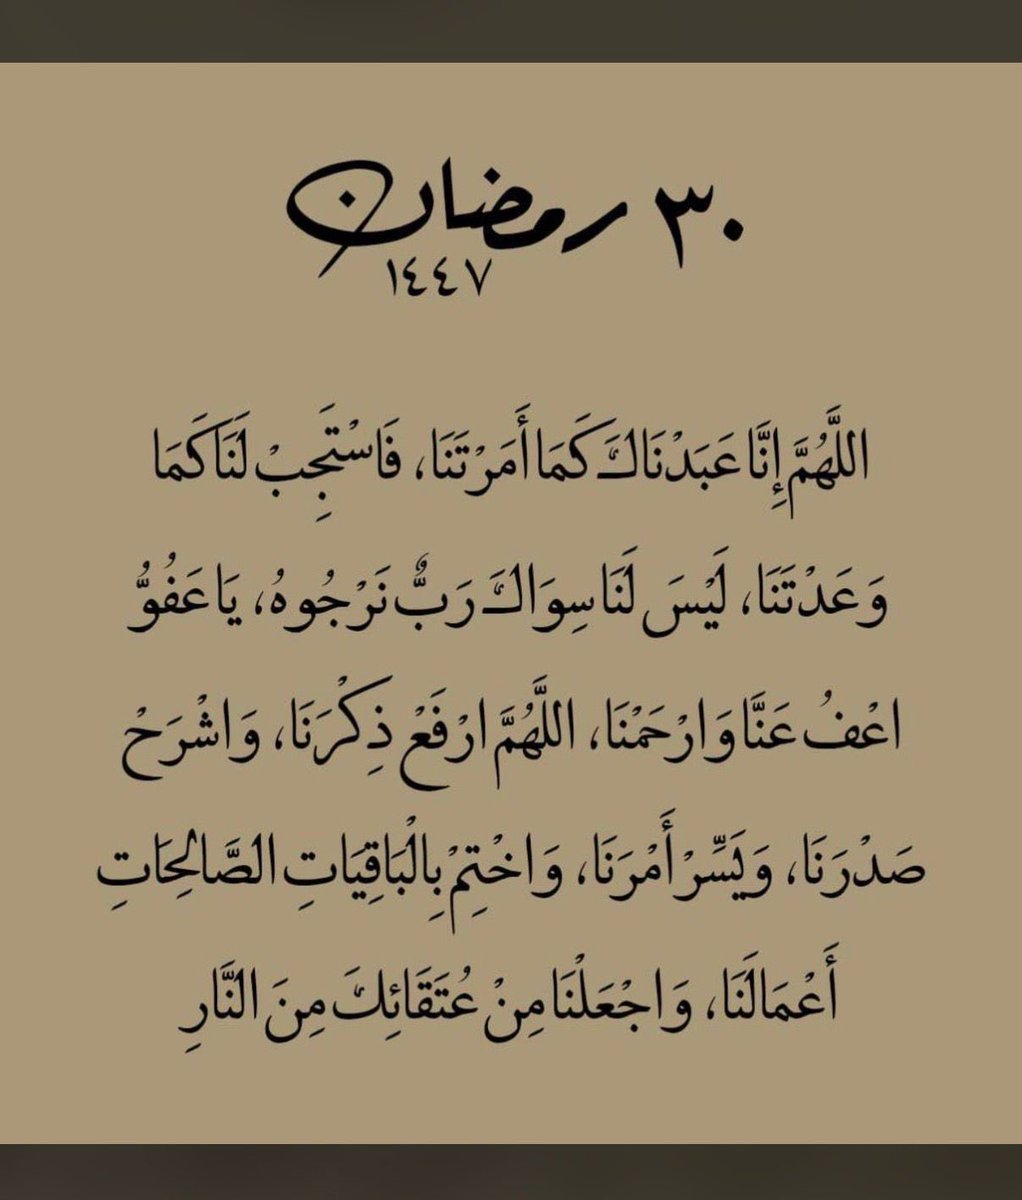 ٣٠ رمضان
١٤٤٧
اللَّهُمَّ إِنَّا عَبَدْنَاكَ كَمَا أَمَرْتَنَا، فَاسْتَجِبْ لَنَا كَمَا
وَعَدْتَنَا، لَيْسَ لَنَا سِوَاكَ رَبٌّ نَرْجُوهُ، يَا عَفُوُّ
اعْفُ عَنَّا وَارْحَمْنَا، اللَّهُمَّ ارْفَعْ ذِكْرَنَا، وَاشْرَحْ
صَدْرَنَا، وَيَسِّرْ أَمْرَنَا، وَاخْتِمْ بِالْبَاقِيَاتِ الصَّالِحَاتِ
أَعْمَالَنَا، وَاجْعَلْنَا مِنْ عُتَقَائِكَ مِنَ النَّارِ